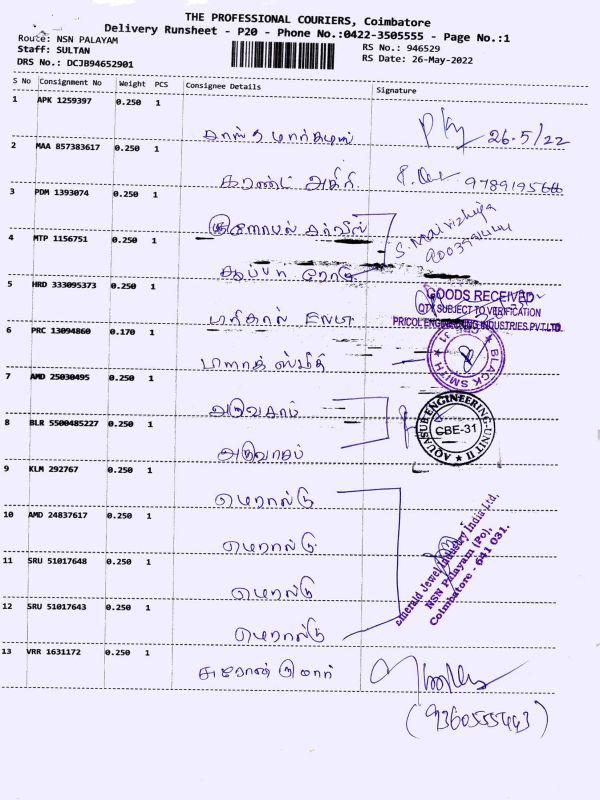 THE PROFESSIONAL COURIERS, Coimbatore
Delivery Runsheet - P20 - Phone No.:0422-3505555 - Page No.:1
Route: NSN PALAYAM
Staff: SULTAN
DRS No.: DCJB94652901
RS No.: 946529
RS Date: 26-May-2022
S No Consignment No Weight PCS Consignee Details Signature
1 APK 1259397 0.250 1
26-5/22
2 MAA 857383617 0.250 1
கரண்ட் அக்ரி
9789195566
3 PDM 1393074 0.250 1
குளோபல் சர்வீஸ்
4 MTP 1156751 0.250 1
5 HRD 333095373 0.250 1
GOODS RECEIVED
QTY SUBJECT TO VERIFICATION
PRICOL ENGINEERING INDUSTRIES PVT.LTD.
6 PRC 13094860 0.170 1
பிளாக் ஸ்மித்
BLACK SMITH
7 AMD 25030495 0.250 1
அக்வாசப்
8 BLR 5500485227 0.250 1
அக்வாசப்
AQUASUB ENGINEERING-UNIT II
CBE-31
9 KLM 292767 0.250 1
எமரால்டு
10 AMD 24837617 0.250 1
எமரால்டு
11 SRU 51017648 0.250 1
எமரால்டு
12 SRU 51017643 0.250 1
எமரால்டு
Emerald Jewel Industry India Ltd,
NSN Palayam (Po),
Coimbatore - 641 031.
13 VRR 1631172 0.250 1
(9360555443)